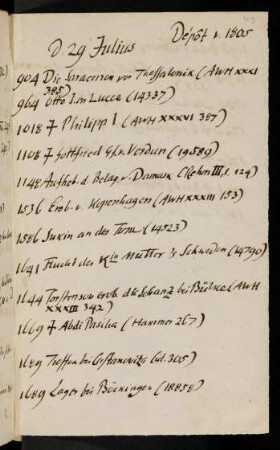 Dépôt v. 1805
D 29 Julius
904 Die Saracenen vor Thessalonik (AWH XXXI
385)
964 Otto I in Lucca (14337)
1018 † Philipp I (AWH XXXVI 387)
1108 † Gottfried v. Verdun (19589)
1148 Aufheb. d Belag. v. Damask (Rehm III, 1. 124)
1536 Erob. v. Kopenhagen (AWH XXXIII 153)
1586 an der Tura (14523)
1641 Flucht der Kin Mutter v Schweden (14790)
1644 Torstenson erob. die Schanz bei Bülk (AWH
XXXIII 342)
1669 † Abdi Pascha (Hammer 267)
1689 Treffen bei Costanowitz (ib. 305)
1689 Lager bei Böckingen (18858)